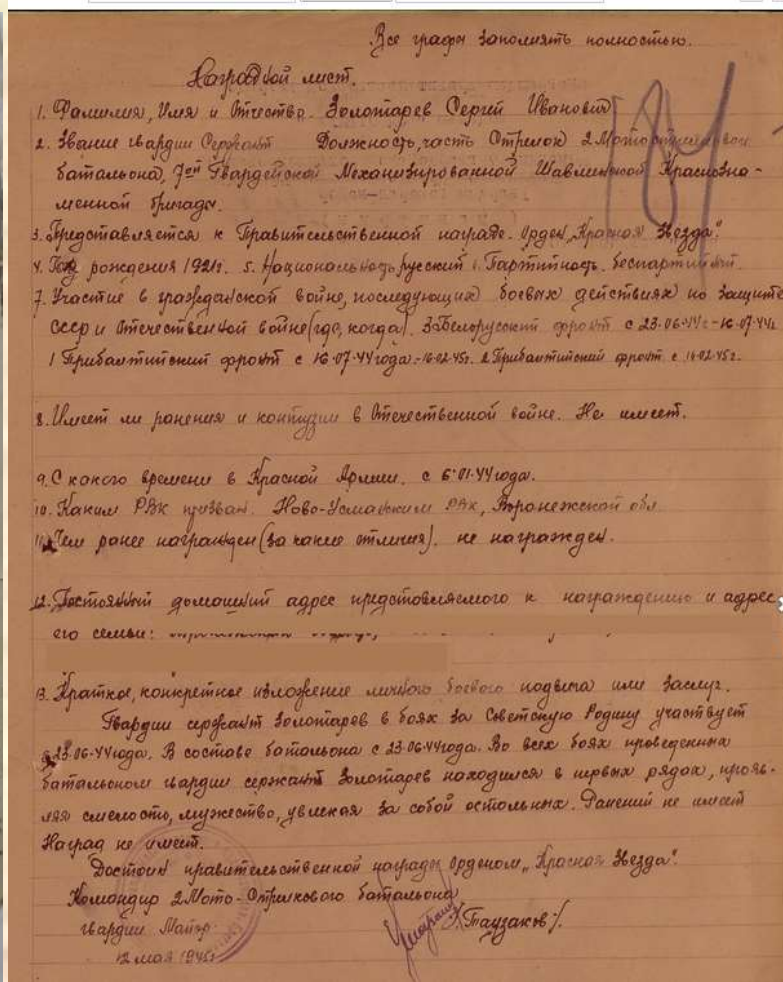 Все графы заполнять полностью.
Наградной лист.
1. Фамилия, Имя и Отчество. Золотарев Сергей Иванович
2. Звание гвардии Сержант Должность, часть Стрелок 2 Мотострелковой
батальона, 7ой Гвардейской Механизированной Шавлинской Краснозна-
менной бригады.
3. Представляется к Правительственной награде. Орден „Красная Звезда".
4. Год рождения 1921г. 5. Национальность русский 6. Партийность. беспартийный
7. Участие в гражданской войне, последующих боевых действиях по защите
СССР и Отечественной войне (где, когда). 3 Белорусский фронт с 23.06.44г - 16.07.44г.
1 Прибалтийский фронт с 16.07.44 года - 16.02.45г. 2 Прибалтийский фронт с 16.02.45г.
8. Имеет ли ранения и контузии в Отечественной войне. Не имеет.
9. С какого времени в Красной Армии. с 6.01.44 года.
10. Каким РВК призван. Ново-Усманским РВК, Воронежской обл.
11. Чем ранее награжден (за какие отличия). не награжден.
12. Постоянный домашний адрес представляемого к награждению и адрес
его семьи:
13. Краткое, конкретное изложение личного боевого подвига или заслуг.
Гвардии сержант Золотарев в боях за Советскую Родину участвует
с 23.06.44 года. В составе батальона с 23.06.44 года. Во всех боях проведенных
батальоном гвардии сержант Золотарев находился в первых рядах, прояв-
ляя смелость, мужество, увлекая за собой остальных. Ранений не имеет
Наград не имеет.
Достоин правительственной награды орденом „Красная Звезда".
Командир 2 Мото-Стрелкового батальона
гвардии Майор /Таузаков/.
12 мая 1945г